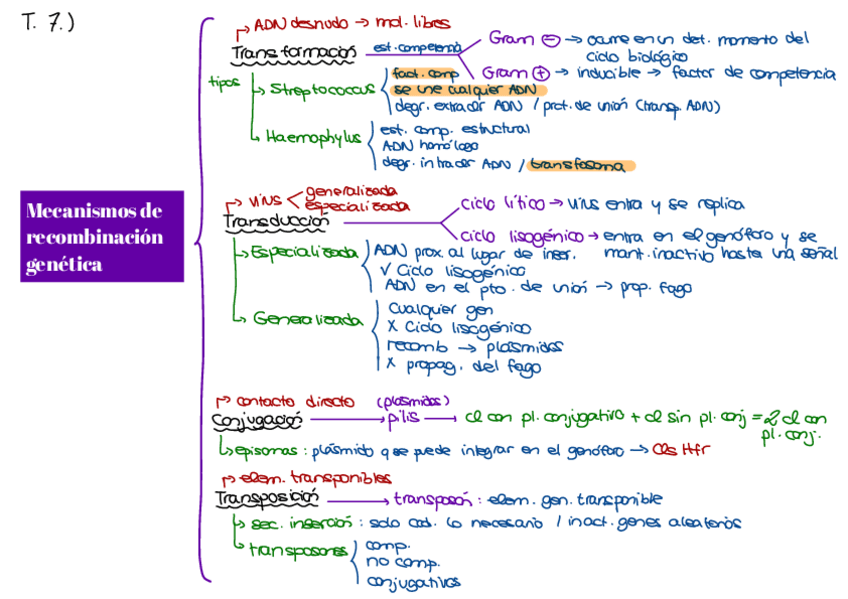 T. 7.)
ADN desnudo → mol. libres
Transformación est. competencia
Gram ⊖ → ocurre en un det. momento del
ciclo biológico
Gram ⊕ → inducible → factor de competencia
tipos
Streptococcus
fact. comp
se une cualquier ADN
degr. extracel ADN / prot. de unión (transp. ADN)
Haemophylus
est. comp. estructural
ADN homólogo
degr. intracel ADN / transfosoma
Mecanismos de
recombinación
genética
virus < generalizada
especializada
Transducción
ciclo lítico → virus entra y se replica
ciclo lisogénico → entra en el genóforo y se
mant. inactivo hasta una señal
Especializada
ADN prox. al lugar de inser.
√ Ciclo lisogénico
ADN en el pto. de unión → prop. fago
Generalizada
Cualquier gen
X Ciclo lisogénico
recomb → plásmidos
X propag. del fago
contacto directo
Conjugación (plásmidos) → pilis → cl con pl. conjugativo + cl sin pl. conj = 2 cl con
pl. conj.
episomas : plásmido q se puede integrar en el genóforo → Cls Hfr
elem. transponibles
Transposición → transposón : elem. gen. transponible
sec. inserción : solo cod. lo necesario / inact. genes aleatorios
transposones
comp.
no comp.
conjugativos